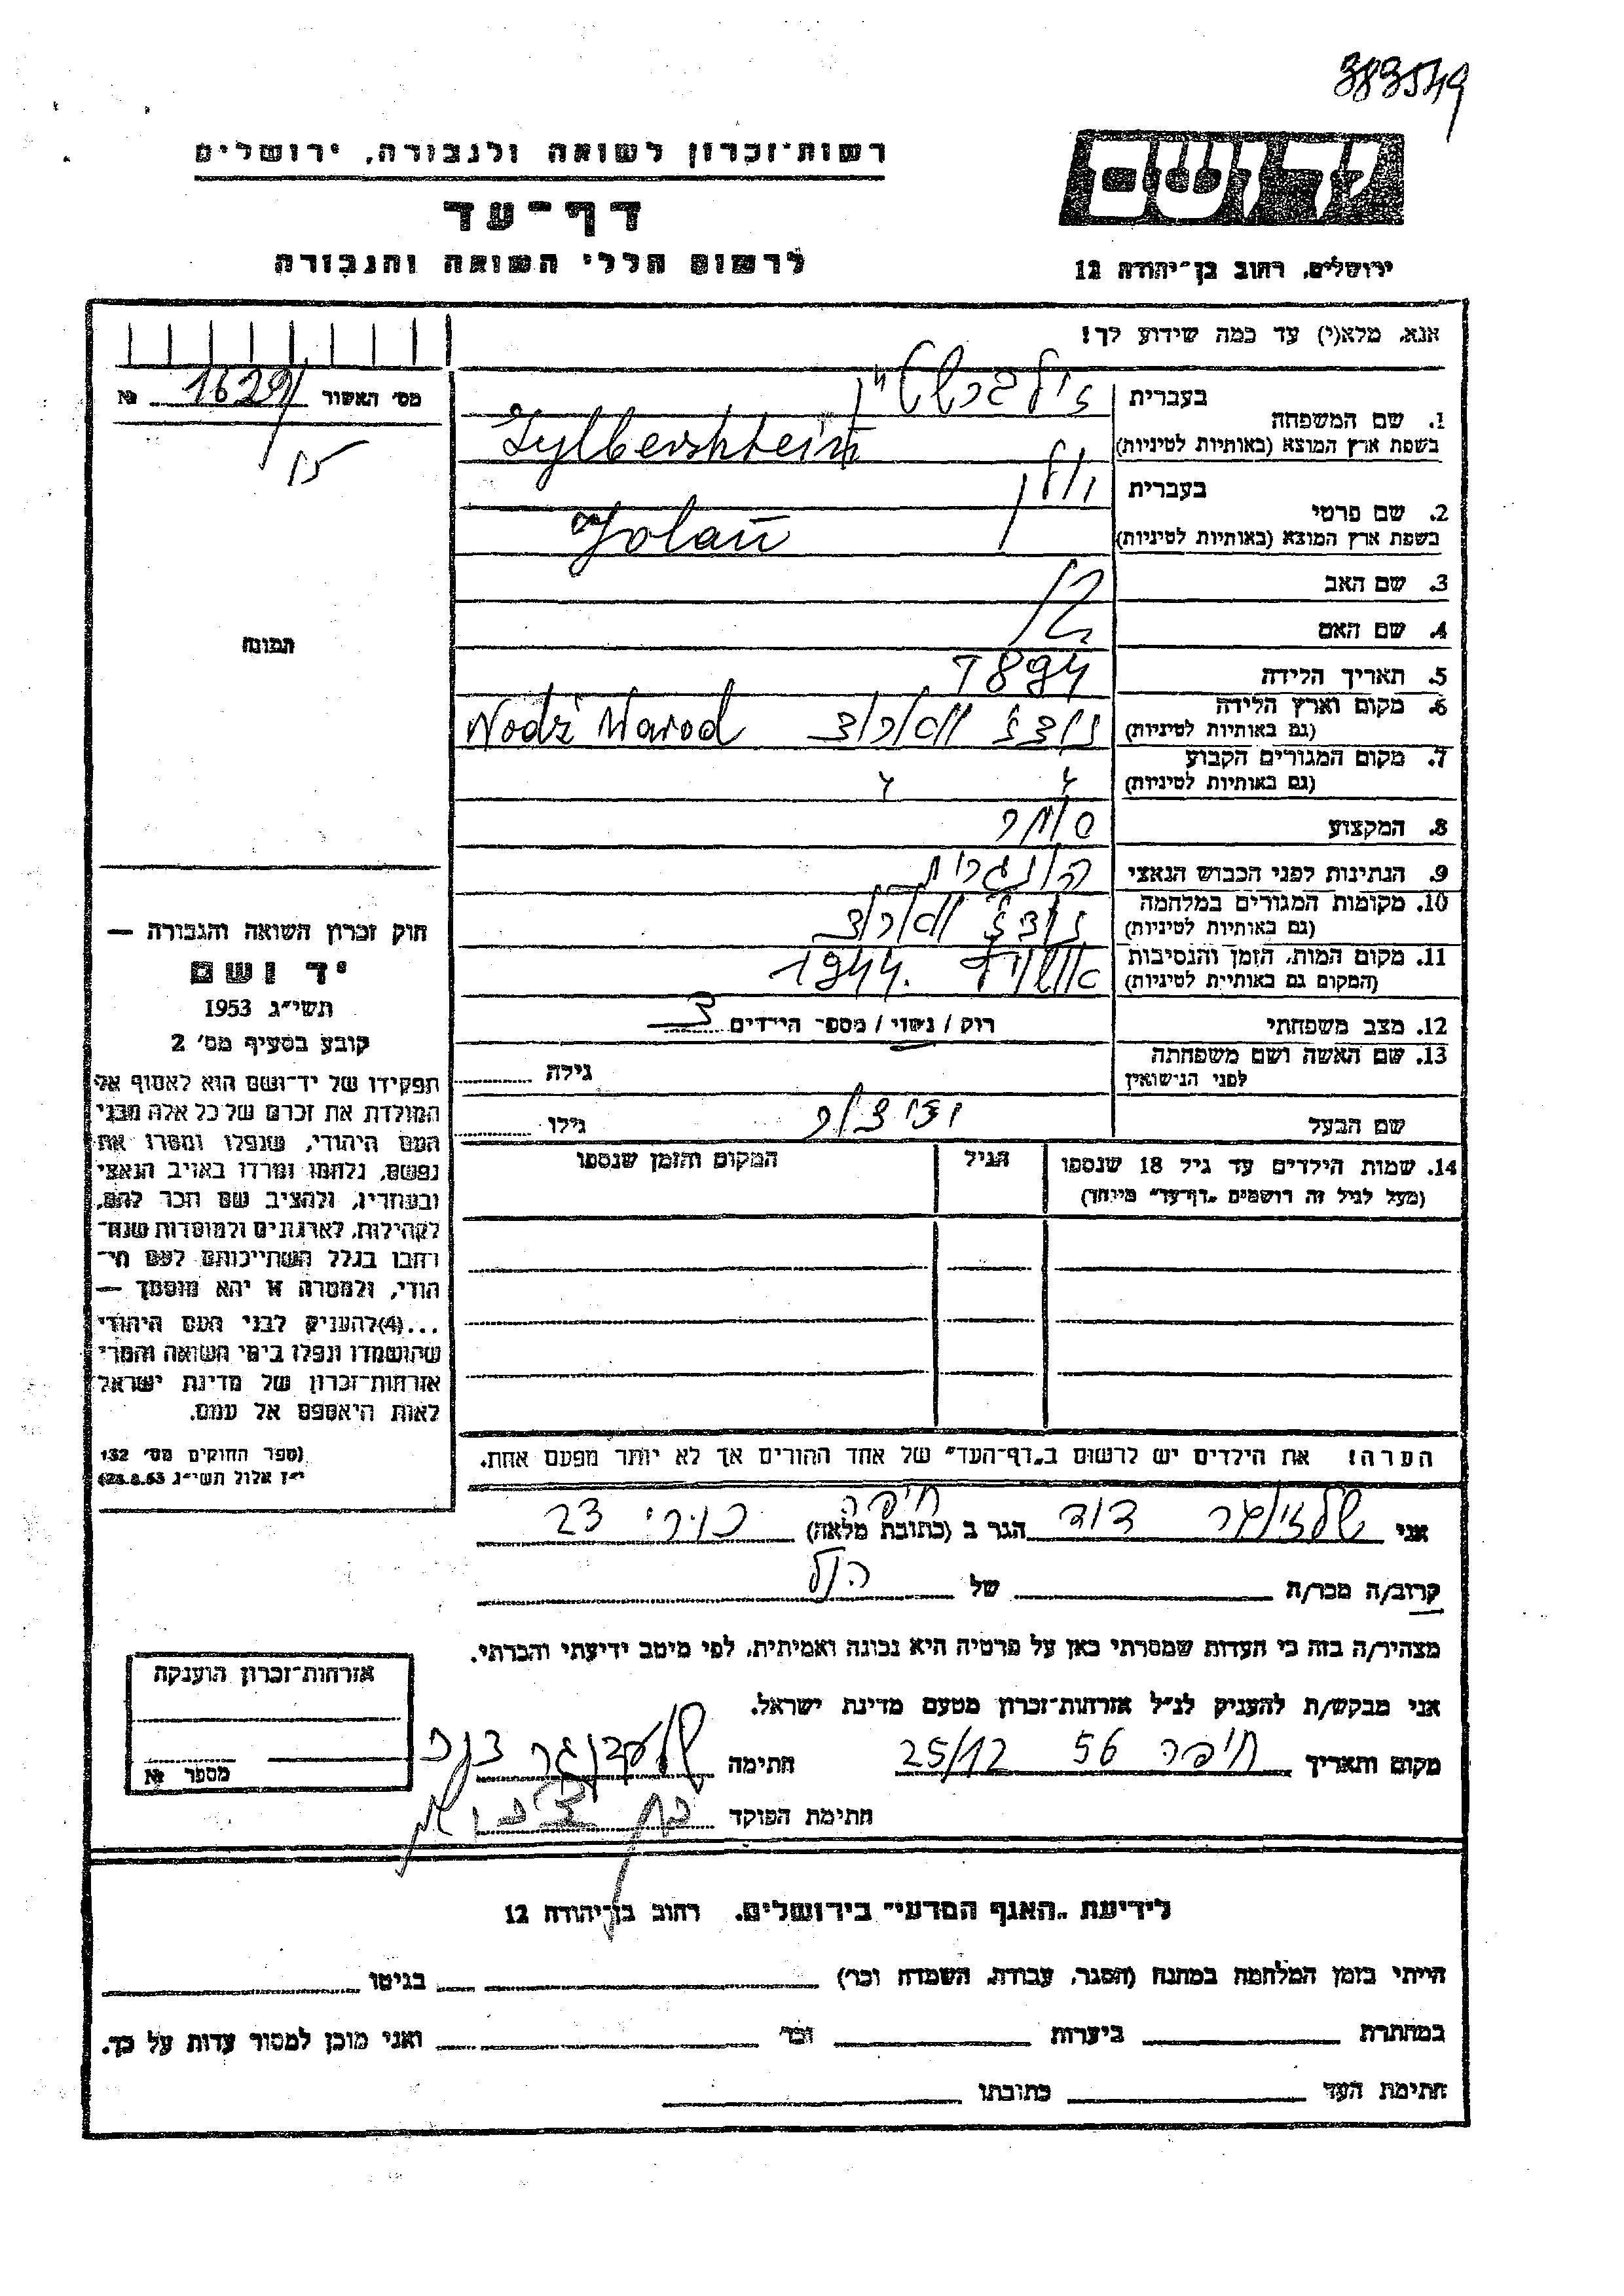 383549
רשות־זכרון לשואה ולגבורה, ירושלים
דף־עד
לרשום חללי השואה והגבורה
ידושם
ירושלים, רחוב בן־יהודה 12
אנא, מלא(י) עד כמה שידוע לך!
מס׳ האשור 1629 №
15
1. שם המשפחה בעברית זילברשטיין
בשפת ארץ המוצא (באותיות לטיניות) Zylbershtein
2. שם פרטי בעברית יולן
בשפת ארץ המוצא (באותיות לטיניות) Jolan
3. שם האב
4. שם האם
5. תאריך הלידה 1894
6. מקום וארץ הלידה
(גם באותיות לטיניות) Nodź Marod
7. מקום המגורים הקבוע
(גם באותיות לטיניות)
8. המקצוע סוחר
9. הנתינות לפני הכבוש הנאצי הונגרית
10. מקומות המגורים במלחמה
(גם באותיות לטיניות)
11. מקום המות, הזמן והנסיבות 1944
(המקום גם באותיות לטיניות)
12. מצב משפחתי רוק / נשוי / מספר הילדים 3
13. שם האשה ושם משפחתה גילה
לפני הנישואין
שם הבעל גילו
14. שמות הילדים עד גיל 18 שנספו הגיל המקום והזמן שנספו
(מעל לגיל זה רושמים „דף־עד״ מיוחד)
הערה! את הילדים יש לרשום ב„דף־העד״ של אחד ההורים אך לא יותר מפעם אחת.
תמונה
חוק זכרון השואה והגבורה —
יד ושם
תשי״ג 1953
קובע בסעיף מס׳ 2
תפקידו של יד־ושם הוא לאסוף אל
המולדת את זכרם של כל אלה מבני
העם היהודי, שנפלו ומסרו את
נפשם, נלחמו ומרדו באויב הנאצי
ובעוזריו, ולהציב שם וזכר להם,
לקהילות, לארגונים ולמוסדות שנח־
רבו בגלל השתייכותם לעם הי־
הודי, ולמטרה זו יהא מוסמך —
...(4) להעניק לבני העם היהודי
שהושמדו ונפלו בימי השואה והמרי
אזרחות־זכרון של מדינת ישראל
לאות היאספם אל עמם.
(ספר החוקים מס׳ 132
י״ז אלול תשי״ג 28.8.53)
אני שלזינגר דוד הגר ב (כתובת מלאה) חיפה 23
קרוב/ה מכר/ה של הנ״ל
מצהיר/ה בזה כי העדות שמסרתי כאן על פרטיה היא נכונה ואמיתית, לפי מיטב ידיעתי והכרתי.
אני מבקש/ת להעניק לנ״ל אזרחות־זכרון מטעם מדינת ישראל.
מקום ותאריך חיפה 25/12 56 חתימה שלזינגר דוד
חתימת הפוקד
אזרחות־זכרון הוענקה
מספר №
לידיעת „האגף המדעי״ בירושלים, רחוב בן־יהודה 12
הייתי בזמן המלחמה במחנה (הסגר, עבודת, השמדה וכו׳) בגיטו
במחתרת ביערות וכו׳ ואני מוכן למסור עדות על כך.
חתימת העד כתובתו